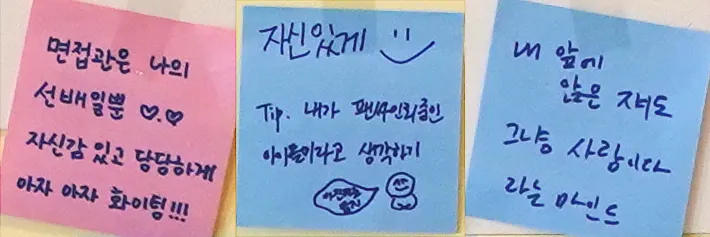 면접관은 나의
선배일뿐 ♡.♡
자신감 있고 당당하게
아자 아자 화이팅!!!
자신있게
Tip. 내가 팬싸인회중인
아이돌이라고 생각하기
내 앞에
앉은 쟤도
그냥 사람이다
라는 마인드